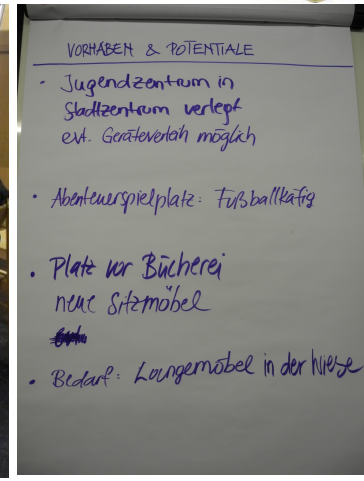 VORHABEN & POTENTIALE
• Jugendzentrum in
Stadtzentrum verlegt
evt. Geräteverleih möglich
• Abenteuerspielplatz: Fußballkäfig
• Platz vor Bücherei
neue Sitzmöbel
• Bedarf: Loungemöbel in der Wiese